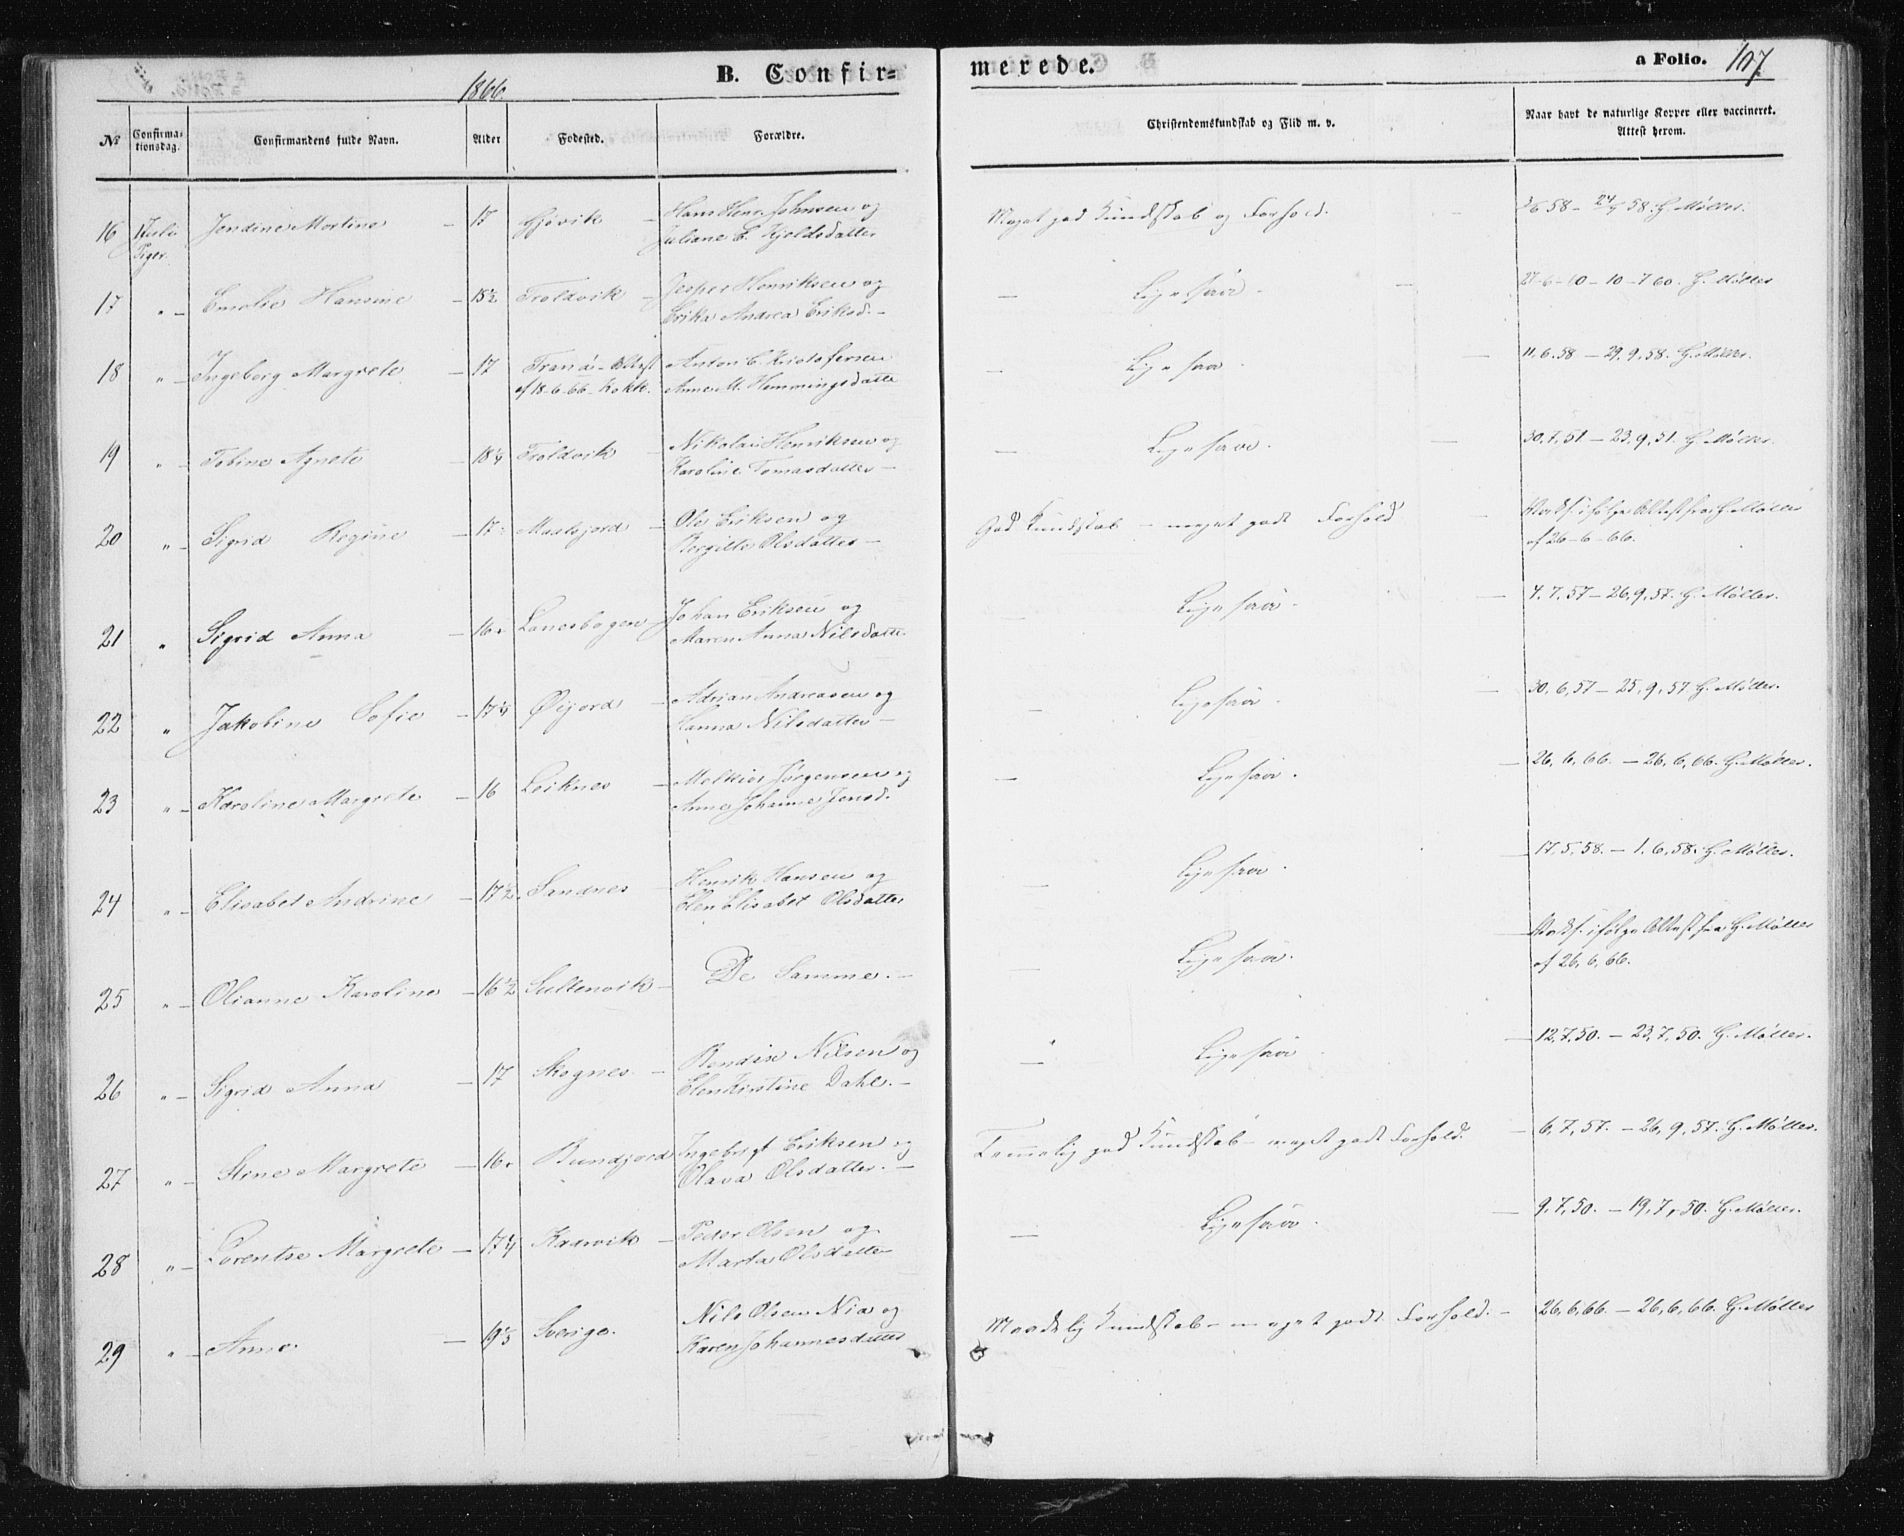 1866.
B. Confir=
merede.
a Folio. 107
№ Confirma- tionsdag. Confirmandens fulde Navn. Alder Fødested. Forældre. Christendomskundskab og Flid m. v. Naar havt de naturlige Kopper eller vaccineret. Attest herom.
16 Juli Jendine Martine – 17 Gjøvik – Hans Henr. Johnsen og Meget god Kundskab og Forhold. G. Møller.
Piger. Juliane E. Kjeldsdatter
17 " – Emelie Hansine – 15½ Troldvik – Jesper Henriksen og – Ligesaa – G. Møller
Erika Andrea Eriksd. –
18 " – Ingeborg Margrete – 17 Tranø – Attest Anton C. Kristofersen – Ligesaa – 11.6.58 – 29.9.58. G. Møller.
af 18-6-66 – Kokk. Anne M. Hemmingsdatte
19 " – Tobine Agnete – 18¼ Troldvik – Nikolai Henriksen og – Ligesaa. – 30,7,51 – 23,9,51. G. Møller.
Karoline Tomasdatter –
20 " – Sigrid Regine – 17 Maalsjord – Ole Eriksen og God Kundskab – meget godt Forhold – ifølge Attest fra G. Møller
Bergitte Olsdatter – af 26-6-66.
21 " Sigrid Anna – 16 Lanesbogen – Johan Eriksen og Ligesaa. – 7.7,57 – 26,9,57. G. Møller.
Maren Anna Nilsdatte
22 " Jakoline Sofie – 17¼ Øijord – Adrian Andreasen og – Ligesaa. – 30,6,57 – 25,9,57 G. Møller.
Hanna Nilsdatter –
23 " – Karoline Margrete – 16 Leiknes – Melkior Jørgensen og – Ligesaa. – 26,6,66. – 26,6,66. G. Møller.
Anne Johanne Jensd.
24 " – Elisabet Andrine – 17½ Sandnes – Henrik Hansen og – Ligesaa. – 17,5,58. – 1.6,58. G. Møller.
Elen Elisabet Olsdatter
25 " – Olianne Karoline – 16½ Sultenvik – De Samme. – – Ligesaa. – ifølge Attest fra G. Møller
af 26,6,66.
26 " – Sigrid Anna – 17 Skognes – Bendix Nilsen og – Ligesaa – 12,7,50. – 23,7,50. G. Møller.
Elen Kirstine Dahl. –
27 " – Stine Margrete – 16 Bundjord Ingebrigt Eriksen og Temmelig god Kundskab – meget godt Forhold. – 6,7,57. – 26,9,57. G. Møller.
Olava Olsdatter. –
28 " – Lorentse Margrete – 17¼ Kaarvik – Peder Olsen og – Ligesaa. – 9,7,50. – 19,7,50. G. Møller.
Marta Olsdatter
29 " – Anne. – Sverige. Nils Olsen Nia og Maadelig Kundskab – meget godt Forhold. – 26,6,66. – 26,6,66. G. Møller
Karen Johannesdatter